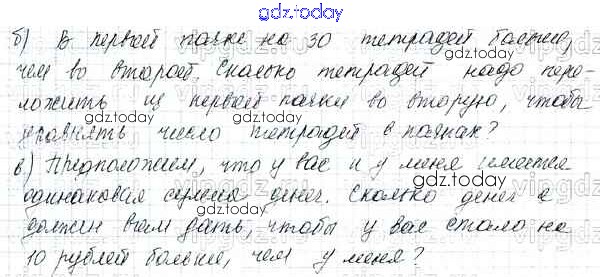 gdz.today
б) В первой пачке на 30 тетрадей больше,
чем во второй. Сколько тетрадей надо пере-
gdz.today
ложить из первой пачки во вторую, чтобы
gdz.today
уравнять число тетрадей в пачках?
в) Предположим, что у вас и у меня имеется
gdz.today
одинаковая сумма денег. Сколько денег я
gdz.today
должен вам дать, чтобы у вас стало на
10 рублей больше, чем у меня?
gdz.today